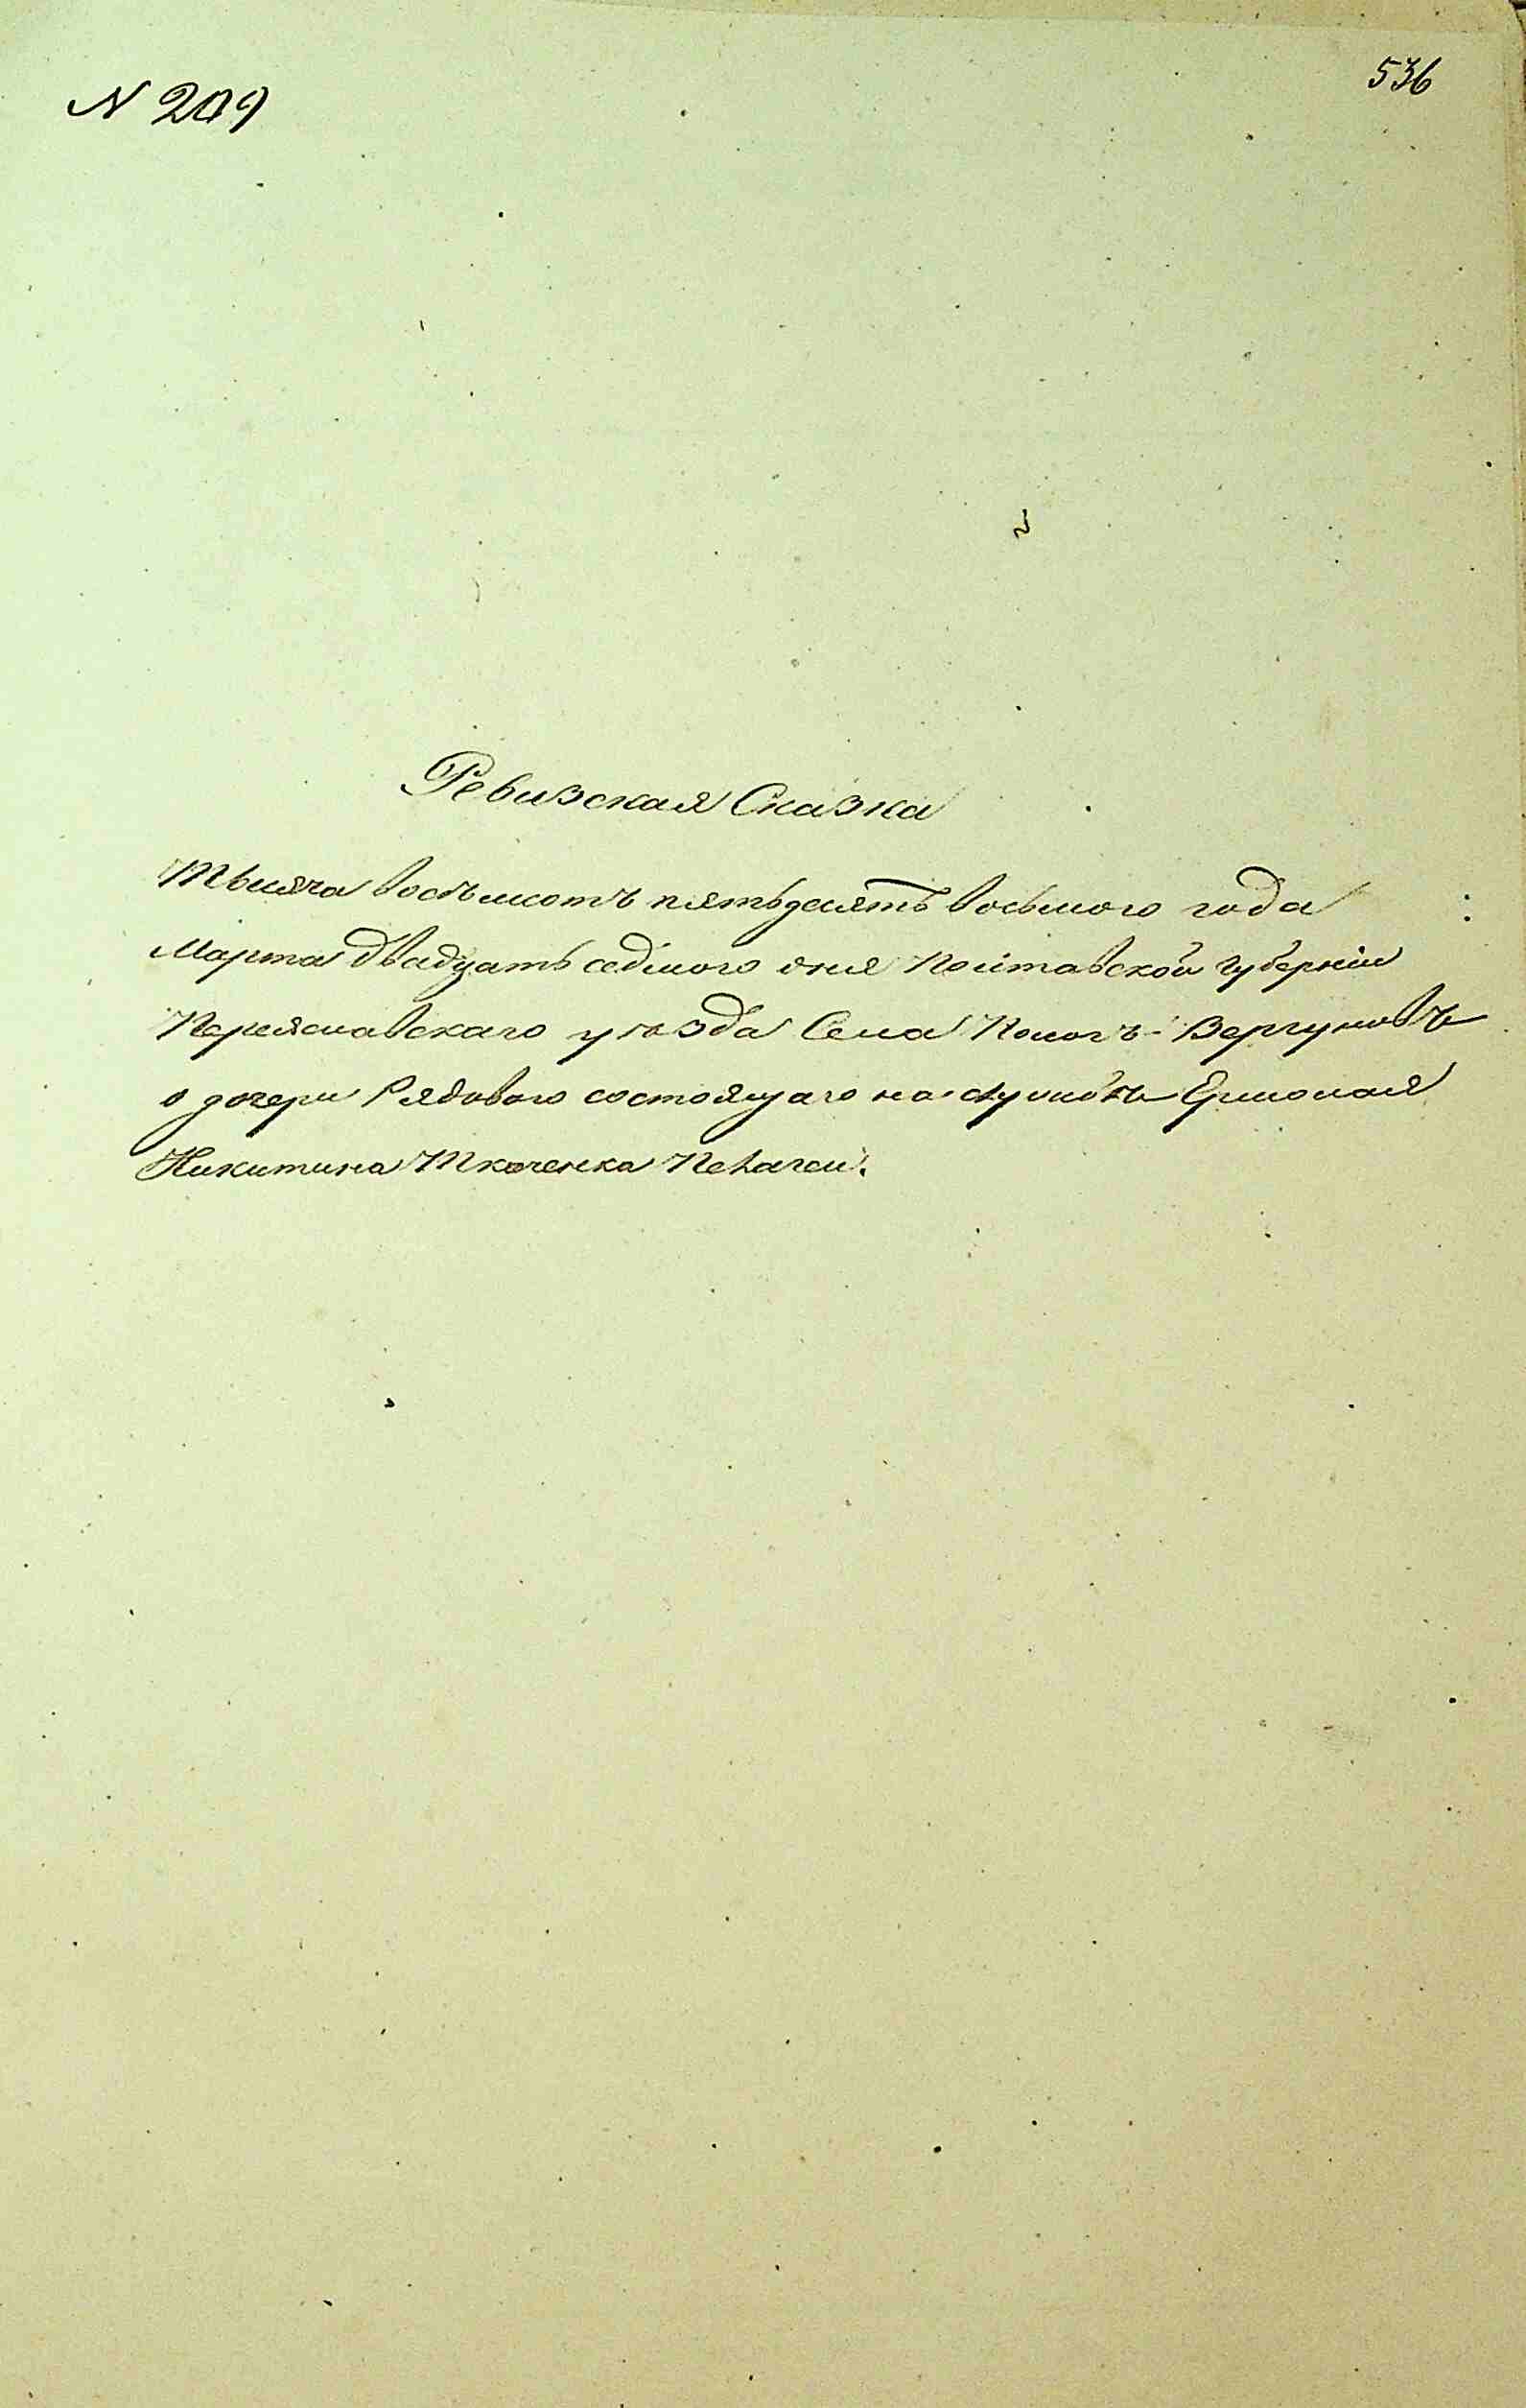 N 209
536
Ревизская Сказка
Тысяча восѣмсотъ пятьдесятъ восьмого года
Марта двадцать седмого дня Полтавской губернии
Переяславскаго уѣзда Села Пологъ-Вергуновъ
о дочери Рядового состоящаго на службѣ Ермолая
Никитина Ткаченка Пелагеи.